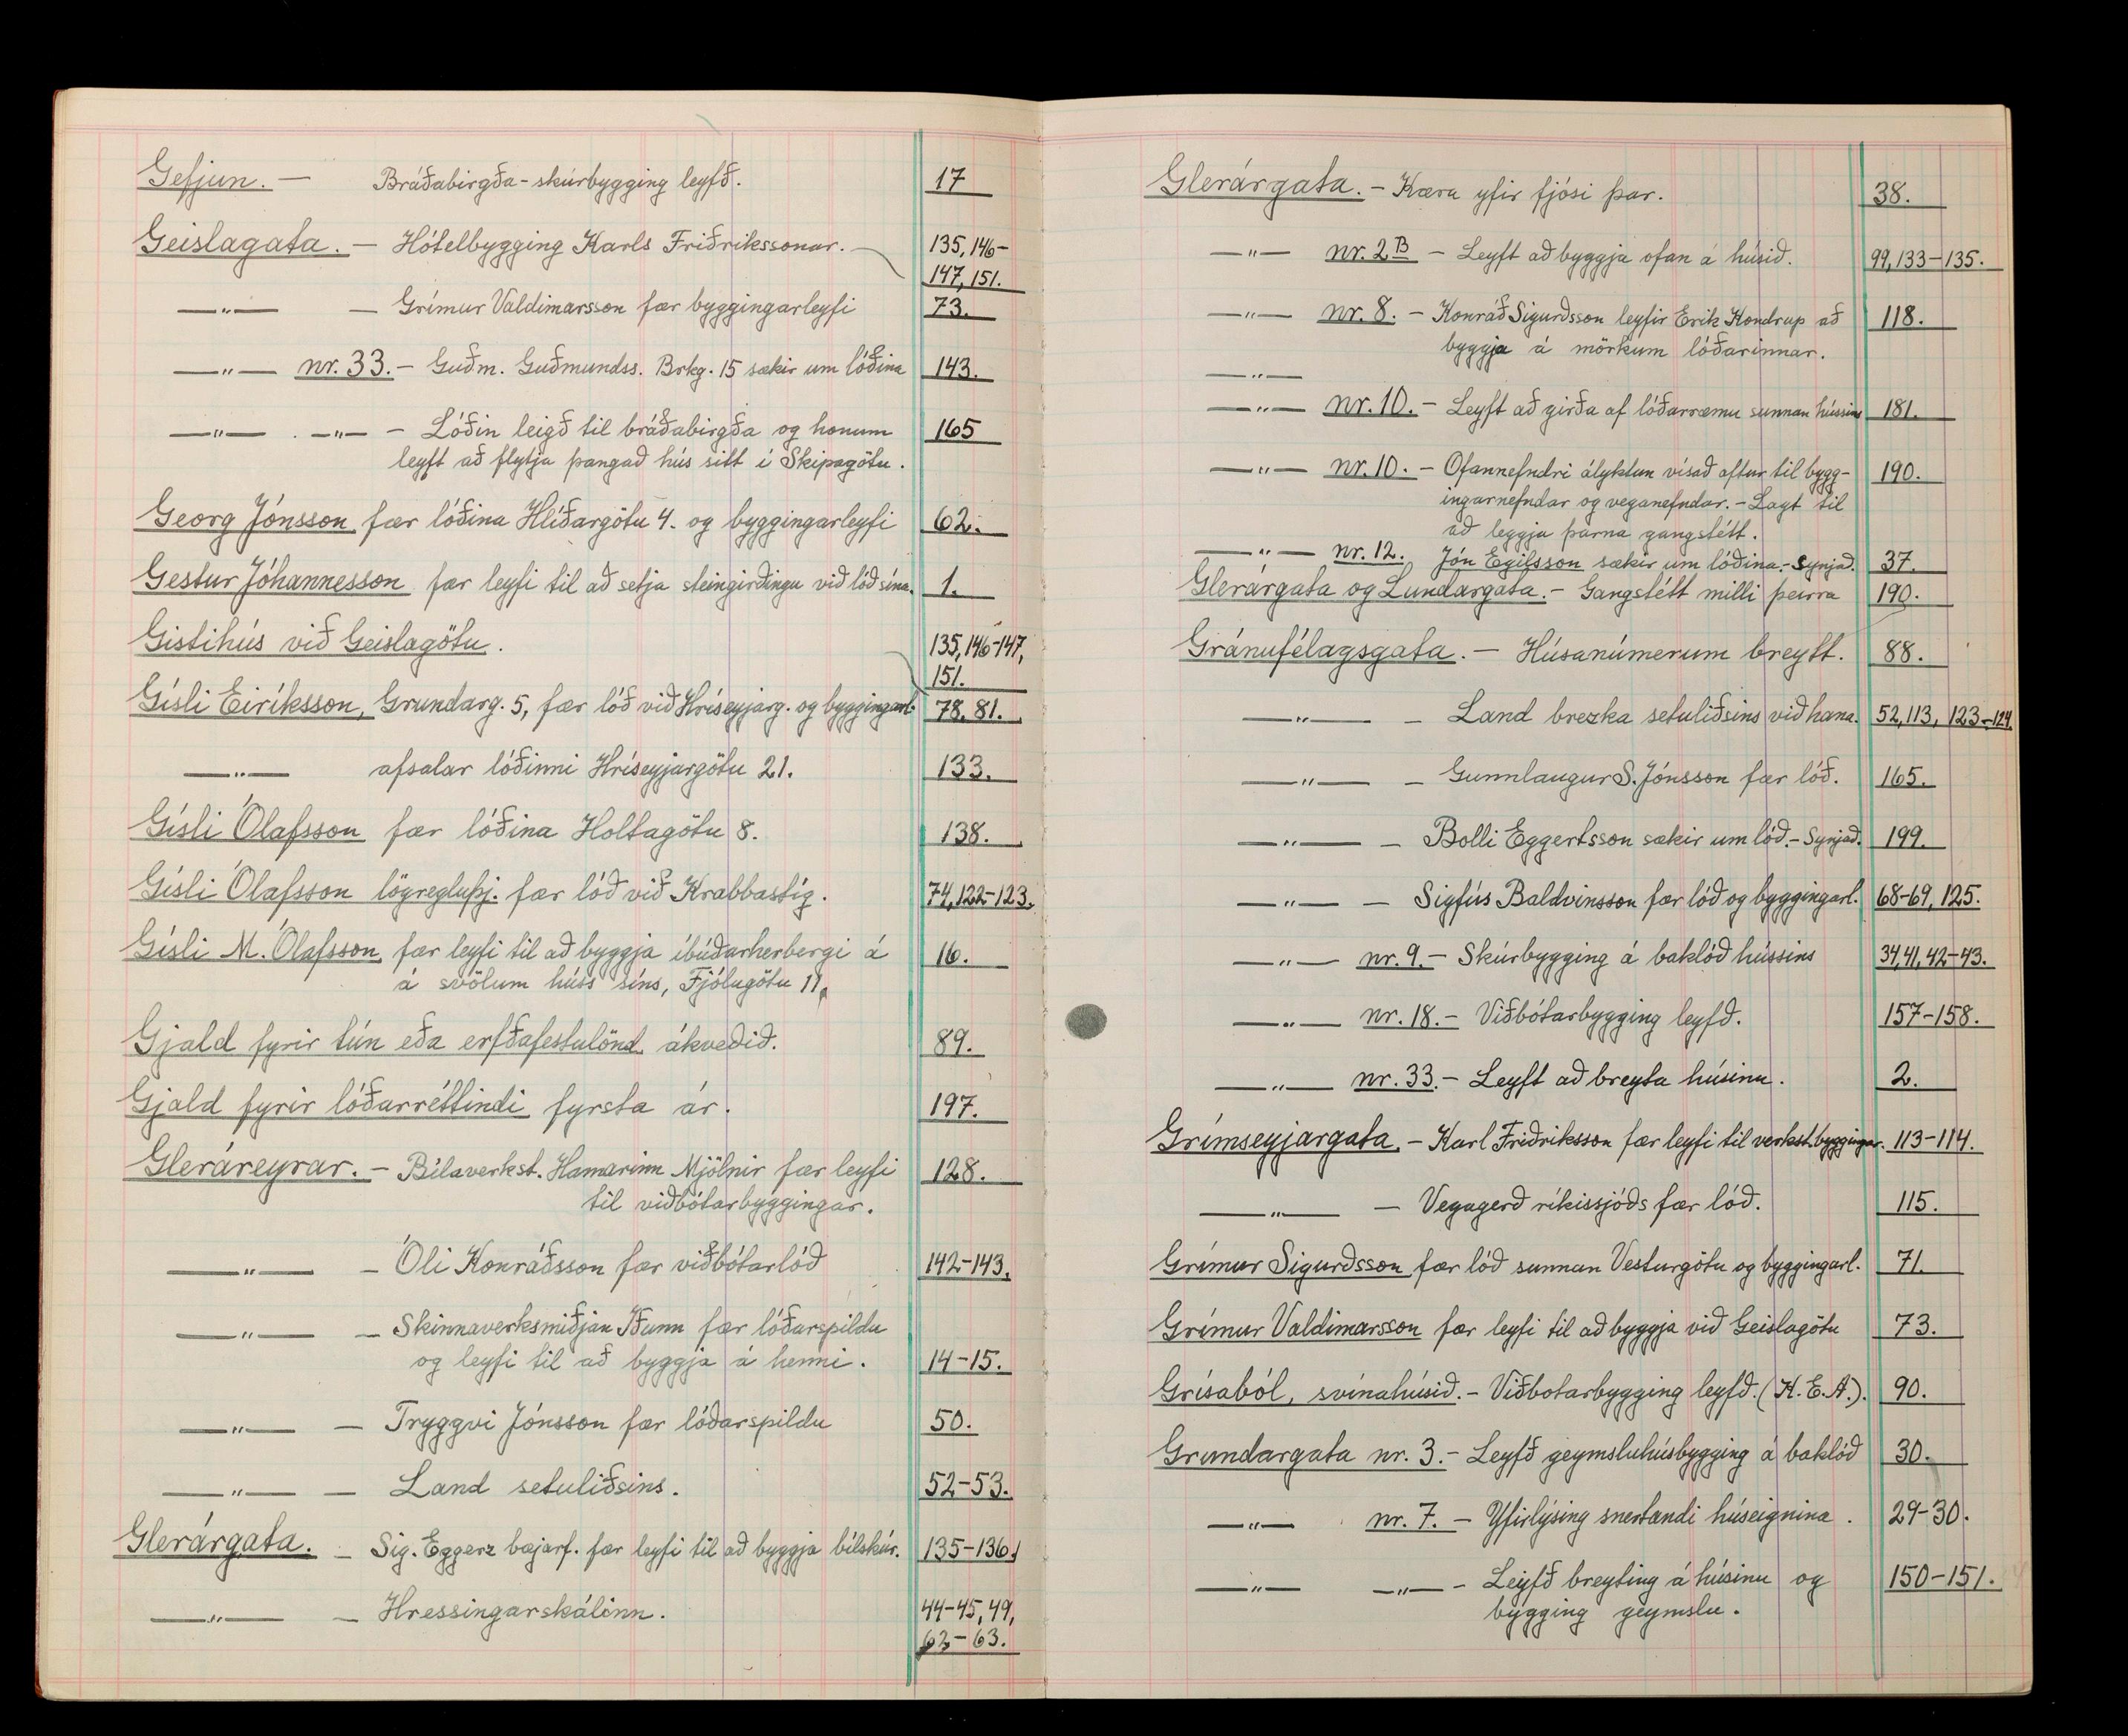 Gefjun. — Bráðabirgða-skúrbygging leyfð. 17
Geislagata. — Hótelbygging Karls Friðrikssonar. 135, 146-
147, 151.
—„— — Grímur Valdimarsson fær byggingarleyfi 73.
—„— nr. 33. — Guðm. Guðmundss. Brkg. 15 sækir um lóðina 143.
—„— . —„— — Lóðin leigð til bráðabirgða og honum 165
leyft að flytja þangað hús sitt í Skipagötu.
Georg Jónsson fær lóðina Hlíðargötu 4. og byggingarleyfi 62.
Gestur Jóhannesson fær leyfi til að setja steingirðingu við lóð sína. 1.
Gistihús við Geislagötu. 135, 146-147,
151.
Gísli Eiríksson, Grundarg. 5, fær lóð við Hríseyjarg. og byggingarl. 78, 81.
—„— afsalar lóðinni Hríseyjargötu 21. 133.
Gísli Ólafsson fær lóðina Holtagötu 8. 138.
Gísli Ólafsson lögregluþj. fær lóð við Krabbastíg. 74, 122-123.
Gísli M. Ólafsson fær leyfi til að byggja íbúðarherbergi á 16.
á svölum húss síns, Fjólugötu 11.
Gjald fyrir tún eða erfðafestulönd ákveðið. 89.
Gjald fyrir lóðarréttindi fyrsta ár. 197.
Gleráreyrar. — Bílaverkst. Hamarinn Mjölnir fær leyfi 128.
til viðbótarbyggingar.
—„— — Óli Konráðsson fær viðbótarlóð 142-143.
—„— — Skinnaverksmiðjan Iðunn fær lóðarspildu
og leyfi til að byggja á henni. 14-15.
—„— — Tryggvi Jónsson fær lóðarspildu 50.
—„— — Land setuliðsins. 52-53.
Glerárgata. — Sig. Eggerz bæjarf. fær leyfi til að byggja bílskúr. 135-136.
—„— — Hressingarskálinn. 44-45, 49,
62-63.
Glerárgata. — Kæra yfir fjósi þar. 38.
—„— nr. 2B — Leyft að byggja ofan á húsið. 99, 133-135.
—„— nr. 8. — Konráð Sigurðsson leyfir Erik Kondrup að 118.
byggja á mörkum lóðarinnar.
—„—
—„— nr. 10. — Leyft að girða af lóðarræmu sunnan hússins 181.
—„— nr. 10. — Ofannefndri ályktun vísað aftur til bygg- 190.
ingarnefndar og veganefndar. — Lagt til
að leggja þarna gangstétt.
—„— nr. 12. Jón Egilsson sækir um lóðina. — Synjað. 37.
Glerárgata og Lundargata. — Gangstétt milli þeirra 190.
Gránufélagsgata. — Húsanúmerum breytt. 88.
—„— — Land brezka setuliðsins við hana. 52, 113, 123-124.
—„— — Gunnlaugur S. Jónsson fær lóð. 165.
—„— — Bolli Eggertsson sækir um lóð. — Synjað. 199.
—„— — Sigfús Baldvinsson fær lóð og byggingarl. 68-69, 125.
—„— nr. 9. — Skúrbygging á baklóð hússins 34, 41, 42-43.
—„— nr. 18. — Viðbótarbygging leyfð. 157-158.
—„— nr. 33. — Leyft að breyta húsinu. 2.
Grímseyjargata. — Karl Friðriksson fær leyfi til verkst.byggingar. 113-114.
—„— — Vegagerð ríkissjóðs fær lóð. 115.
Grímur Sigurðsson fær lóð sunnan Vesturgötu og byggingarl. 71.
Grímur Valdimarsson fær leyfi til að byggja við Geislagötu 73.
Grísaból, svínahúsið. — Viðbotarbygging leyfð. (K.E.A.). 90.
Grundargata nr. 3. — Leyfð geymsluhúsbygging á baklóð 30.
—„— nr. 7. — Yfirlýsing snertandi húseignina. 29-30.
—„— —„— — Leyfð breyting á húsinu og 150-151.
bygging geymslu.